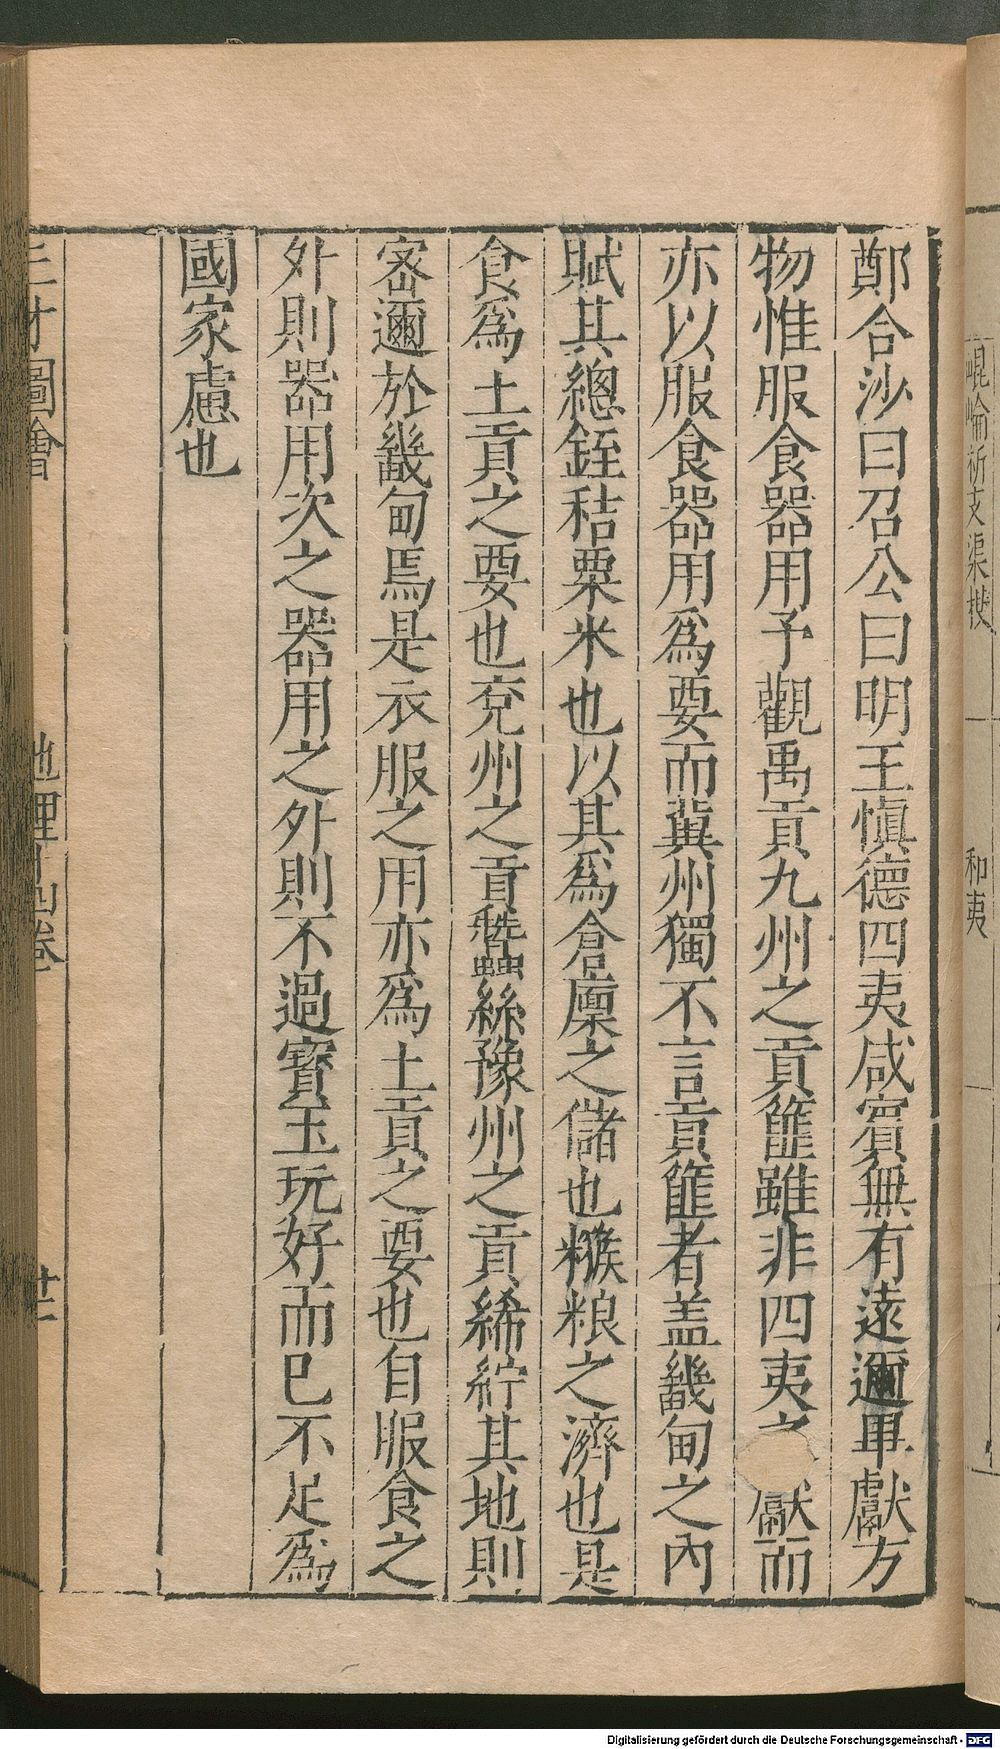 鄭合沙曰召公曰明王慎德四夷咸賓無有遠邇畢獻方
物惟服食器用予觀禹貢九州之貢篚雖非四夷之獻而
亦以服食器用爲要而冀州獨不言貢篚者盖畿甸之內
賦其總銍秸粟米也以其爲倉廩之儲也糇粮之濟也是
食爲土貢之要也兖州之貢蠶絲豫州之貢絺紵其地則
宻邇於畿甸焉是衣服之用亦爲土貢之要也自服食之
外則器用次之器用之外則不過寳玉玩好而已不足爲
國家慮也
三才圖會
地理十四卷
廿二
崐崘析支渠搜
和夷
Digitalisierung gefördert durch die Deutsche Forschungsgemeinschaft - DFG